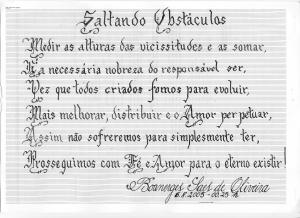 Saltando Obstáculos
Medir as alturas das vicissitudes e as somar,
É a necessária nobreza do responsável ser,
Vez que todos criados fomos para evoluir,
Mais melhorar, distribuir e o Amor perpetuar,
Assim não sofreremos para simplesmente ter,
Prosseguimos com Fé e Amor para o eterno existir!
Bonnerges Saes de Oliveira